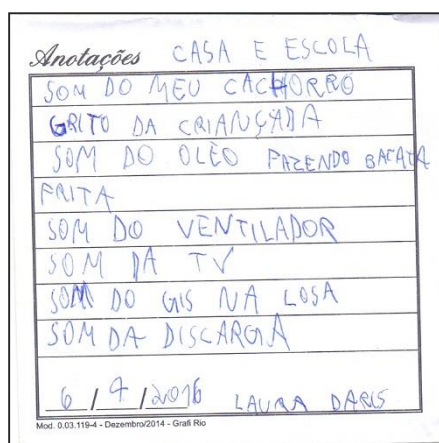 Anotações CASA E ESCOLA
SOM DO MEU CACHORRO
GRITO DA CRIANÇADA
SOM DO OLÉO FAZENDO BATATA
FRITA
SOM DO VENTILADOR
SOM DA TV
SOM DO GIS NA LOSA
SOM DA DISCARGA
6 / 4 / 2016 LAURA
Mod. 0.03.119-4 - Dezembro/2014 - Grafi Rio